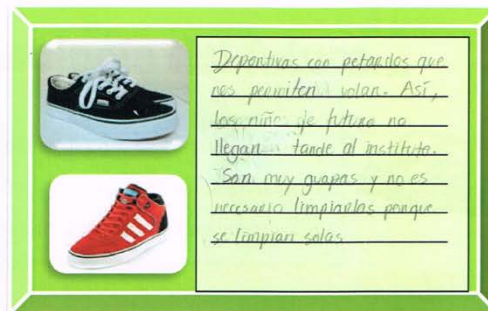 Deportivas con petardos que
nos permiten volar. Así,
los niño de futuro no
llegan tarde al instituto.
Son muy guapas y no es
necesario limpiarlas porque
se limpian solas